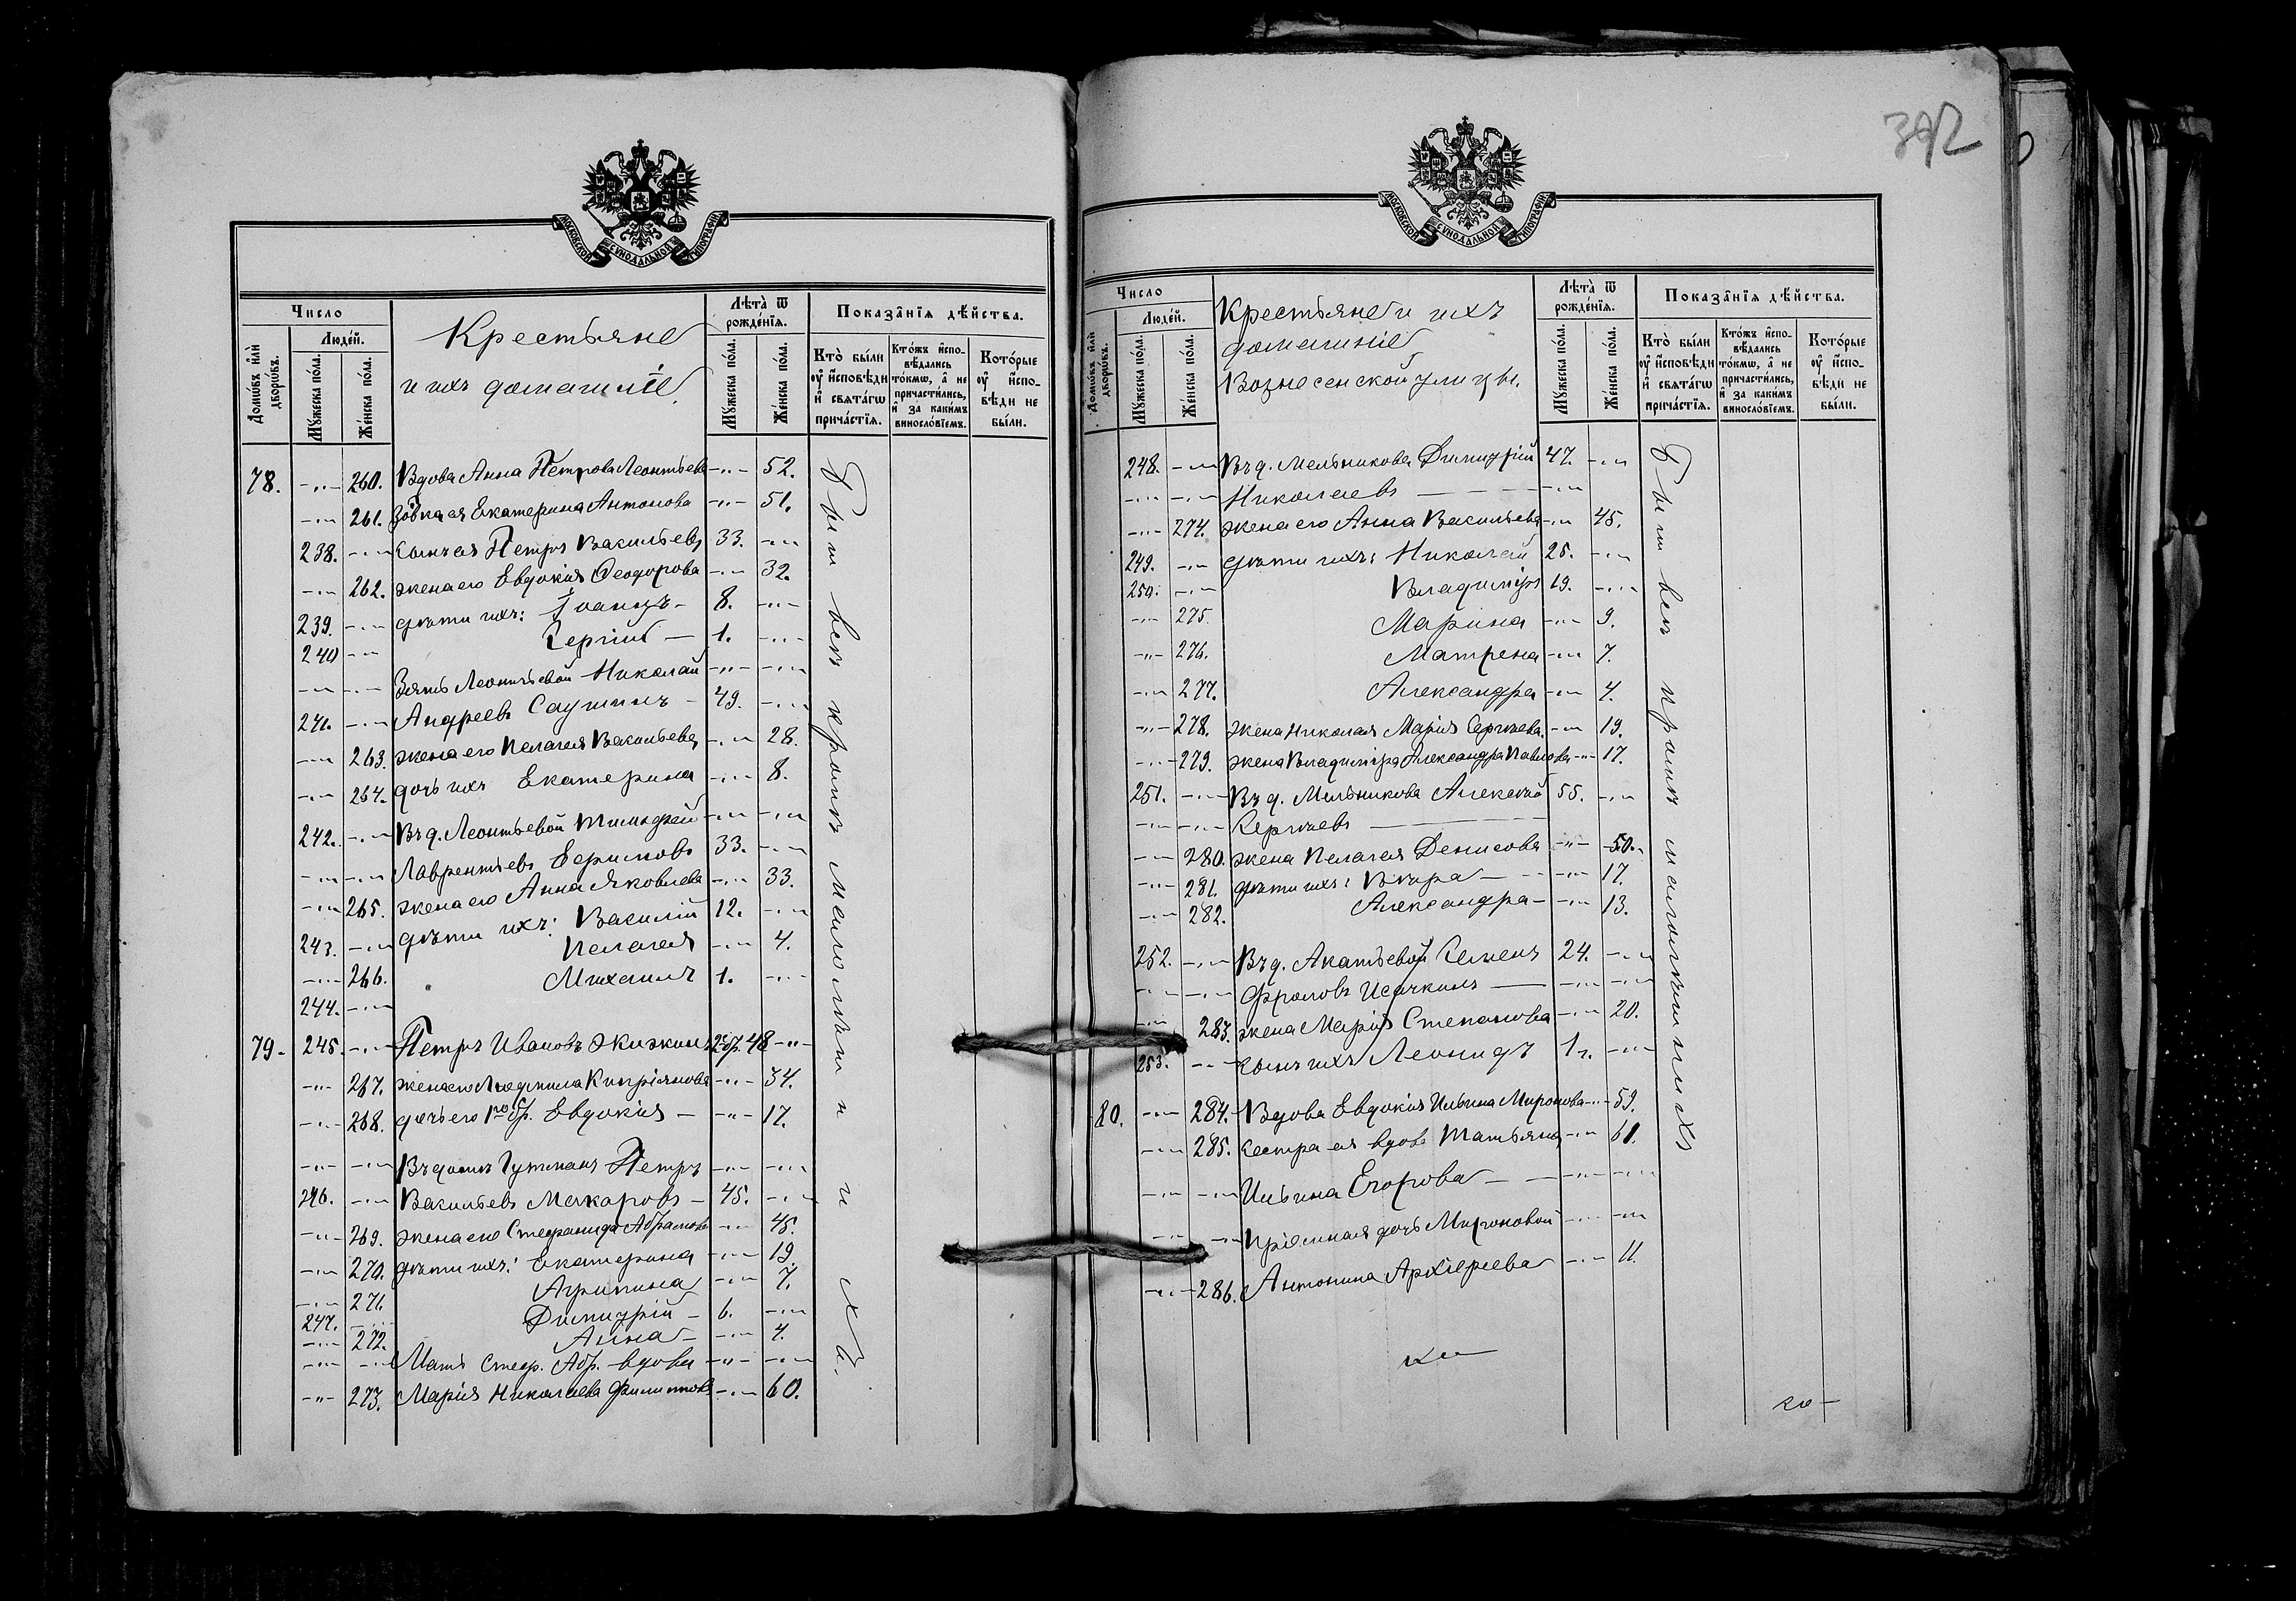 392
МОСКОВСКОЙ СѴНОДАЛЬНОЙ ТИПОГРАФІИ
Число
Людей.
Домѡвъ или дворѡвъ.
Мꙋжеска пола.
Женска пола.
Крестьяне
и ихъ домашніе.
Лѣта ѿ рожденїѧ.
Мꙋжеска пола.
Женска пола.
Показанїѧ дѣйства.
Кто были оу исповѣди и свѧтагѡ причастїѧ.
Ктожъ исповѣдались токмѡ, а не причастились, и за какимъ винословїемъ.
Которые оу исповѣди не были.
78. -"- 260. Вдова Анна Петрова Леонтьева -"- 52.
-"- 261. Екатерина Антонова -"- 51.
238. -"- сынъ ея Петръ Васильевъ 33. -"-
-"- 262. жена его Евдокія Ѳеодорова -"- 32.
239. -"- дѣти ихъ: Іоаннъ - 8. -"-
240 -"- Сергій - 1. -"-
-"- -"- Зять Леонтьевой Николай -"- -"-
241. -"- Андреевъ - 49. -"-
-"- 263. жена его Пелагея Васильева -"- 28.
-"- 264. дочь ихъ Екатерина -"- 8.
242. -"- Въ д. Леонтьевой Тимофей -"- -"-
-"- -"- Лаврентьевъ 33. -"-
-"- 265. жена его Анна Яковлева -"- 33.
243. -"- дѣти ихъ: Василій 12. -"-
-"- 266. Пелагея -"- 4.
244. -"- Михаилъ 1. -"-
79- 245. -"- Петръ Ивановъ Жижкинъ 2 бр. 48 -"-
-"- 267. жена его Людмила Кипріянова -"- 34.
-"- 268. дочь его 1го бр. Евдокія - -"- 17.
-"- -"- Въ домѣ Гутманъ Петръ -"- -"-
246. -"- Васильевъ Макаровъ - 45. -"-
-"- 269. жена его Стефанида Абрамова -"- 45.
-"- 270. дѣти ихъ: Екатерина -"- 19.
-"- 271. Агрипина -"- 7.
247. -"- Димитрій - 6. -"-
-"- 272. Анна - -"- 4.
-"- -"- Мать Стеф. Абр. вдова -"- -"-
-"- 273. Марія Николаева Филиппова -"- 60.
Были всѣ кромѣ малолѣтнихъ.
МОСКОВСКОЙ СѴНОДАЛЬНОЙ ТИПОГРАФІИ
Число
Людей.
Домѡвъ или дворѡвъ.
Мꙋжеска пола.
Женска пола.
Крестьяне и ихъ
домашніе
Вознесенской улицы.
Лѣта ѿ рожденїѧ.
Мꙋжеска пола.
Женска пола.
Показанїѧ дѣйства.
Кто были оу исповѣди и свѧтагѡ причастїѧ.
Ктожъ исповѣдались токмѡ, а не причастились, и за какимъ винословїемъ.
Которые оу исповѣди не были.
248. -"- Въ д. Мельникова Димитрій 47. -"-
-"- -"- Николаевъ -"-
-"- 274. жена его Анна Васильева -"- 45.
249. -"- дѣти ихъ: Николай 25. -"-
250. -"- Владиміръ 19. -"-
-"- 275. Марина -"- 9.
-"- 276. Матрена -"- 7.
-"- 277. Александра -"- 4.
-"- 278. жена Николая Марія Сергѣева -"- 19.
-"- 279. жена Владиміра Александра Павлова -"- 17.
251. -"- Въ д. Мельникова Алексѣй 55. -"-
-"- -"- Сергѣевъ
-"- 280. жена Пелагея Денисова -"- 50.
-"- 281. дѣти ихъ: Вѣра - -"- 17.
-"- 282. Александра - -"- 13.
252. -"- Въ д. Акатьевой Семенъ 24. -"-
-"- -"- Фроловъ Исачкинъ -"- -"-
-"- 283. жена Марія Степанова -"- 20.
253. -"- сынъ ихъ Леонидъ 1 г. -"-
80. -"- 284. Вдова Евдокія Ильина Миронова -"- 59.
-"- 285. Сестра ея вдова Татьяна -"- 61.
-"- -"- Ильина Егорова -"- -"-
-"- -"- Пріемная дочь Мироновой -"- -"-
-"- 286. Антонина Архіереева -"- 11.
Были всѣ кромѣ малолѣтнихъ